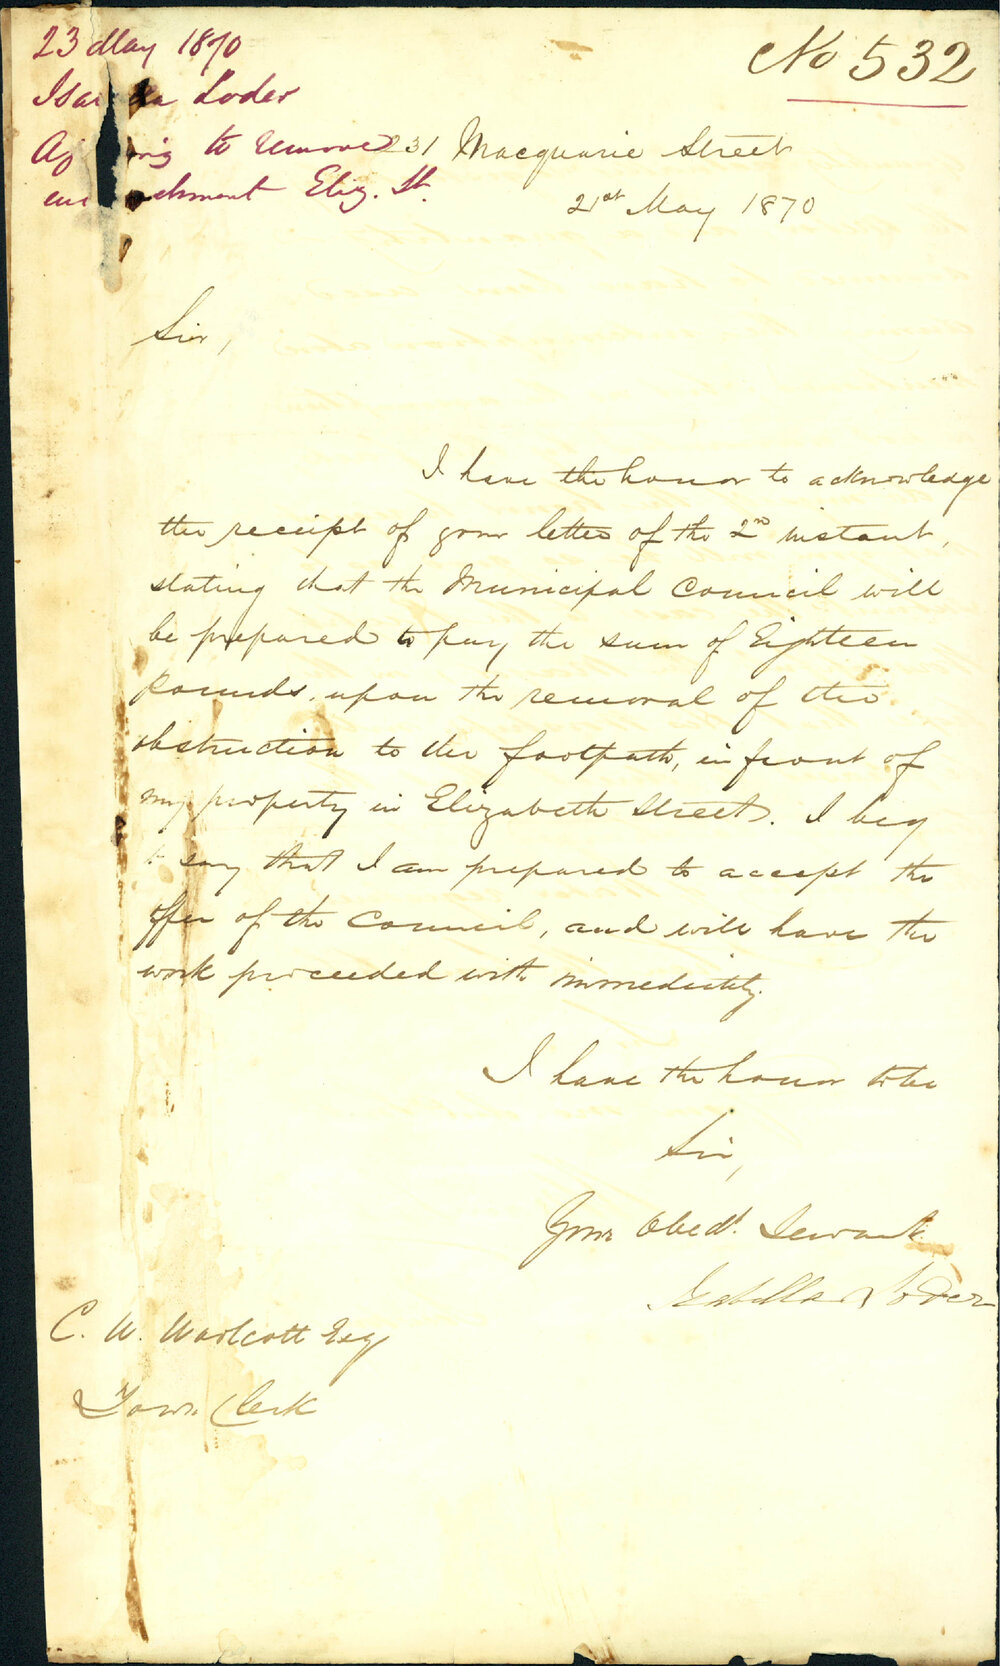 23 May 1870
No 532
Isa la Loder
Ag ing to remove
encroachment Eliz. St.
231 Macquarie Street
21st May 1870
Sir,
I have the honor to acknowledge
the receipt of your letter of the 2nd instant,
stating that the Municipal Council will
be prepared to pay the sum of Eighteen
pounds, upon the removal of the
obstruction to the footpath, in front of
my property in Elizabeth Street. I beg
to say that I am prepared to accept the
offer of the Council, and will have the
work proceeded with immediately.
I have the honor to be
Sir,
Your Obedt. Servant
Isabella Loder
C. H. Woolcott Esq
Town Clerk